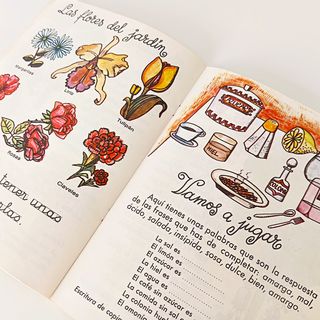 Las flores del jardín
Margaritas
Lirio
Tulipán
Rosas
Claveles
tener unas
AZÚCAR
MIEL
COLONIA
Vamos a jugar
Aquí tienes unas palabras que son la respuesta
de las frases que has de completar: amarga, mal,
ácido, salada, insípida, sosa, dulce, bien, amargo.
La sal es
El limón es
El azúcar es
La hiel es
El agua es
El café sin azúcar es
La comida sin sal es
La colonia huele
Escritura de copia